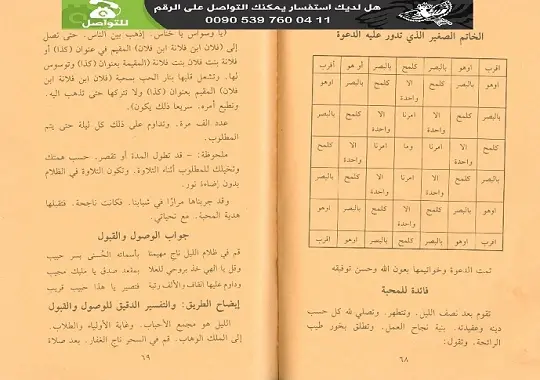 هل لديك استفسار يمكنك التواصل على الرقم
0090 539 760 04 11
للتواصل
الخاتم الصغير الذي تدور عليه الدعوة
اقرب اوهو بالبصر كلمح بالبصر أو هو أقرب
اوهو بالبصر كلمح الا واحدة كلمح بالبصر اوهو
بالبصر كلمح الا واحدة امرنا الا واحدة كلمح بالبصر
كلمح الا واحدة امرنا وما امرنا الا واحدة كلمح
بالبصر كلمح الا واحدة امرنا الا واحدة كلمح بالبصر
اوهو بالبصر كلمح الا واحدة كلمح بالبصر اوهو
اقرب اوهو بالبصر كلمح بالبصر اوهو اقرب
تمت الدعوة وخواتيمها بعون الله وحسن توفيقه
فائدة للمحبة
تقوم بعد نصف الليل. وتتطهر. وتصلي لله كل حسب
دينه وعقيدته. بنية نجاح العمل. وتطلق بخور طيب
الرائحة. وتقول:
٦٨
(يا وسواس يا خناس. إذهب بين الناس. حتى تصل
إلى (فلان ابن فلانة ابن فلان) المقيم في عنوان (كذا) أو
فلانة بنت فلان بنت فلانة (المقيمة بعنوان (كذا) وتوسوس
لها. وتشعل قلبها بنار الحب بمحبة (فلان ابن فلانة ابن
فلان) المقيم بعنوان (كذا) ولا تتركها حتى تذهب اليه.
وتطيع أمره. سريعا ذلك يكون).
عدد الف مرة. وتداوم على ذلك كل ليلة حتى يتم
المطلوب.
ملحوظة: - قد تطول المدة أو تقصر. حسب همتك
وتخيلك للمطلوب أثناء التلاوة. وتكون التلاوة في الظلام
بدون إضاءة نور.
وقد جربناها مرارًا في شبابنا. فكانت ناجحة. فتقبلها
هدية المحبة. مع تحياتي.
جواب الوصول والقبول
قم في ظلام الليل ناج مهيمنا بأسمائه الحُسنى بسر حبيب
وقل يا الهي خذ بروحي للعلا بمقعد صدق يا مليك مجيب
وداوم عليها آناف والألف رتبة فتصير يا هذا حبيب قريب
إيضاح الطريق: والتفسير الدقيق للوصول والقبول
الليل هو مجمع الأحباب. وغاية الأولياء والطلاب.
إلى الملك الوهاب. قم في السحر ناج الغفار. بعد صلاة
٦٩